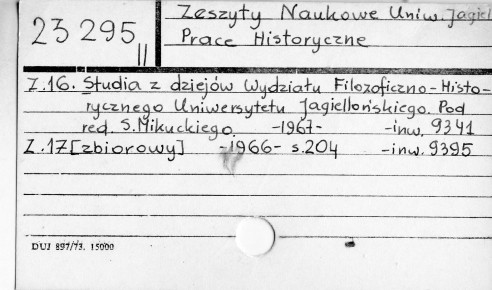 23 295 II
Zeszyty Naukowe Uniw. Jagiel
Prace Historyczne
Z.16. Studia z dziejów Wydziału Filozoficzno-Histo-
rycznego Uniwersytetu Jagiellońskiego. Pod
red. S. Mikuckiego. -1967- -inw. 9341
Z.17 [zbiorowy] -1966- s. 204 -inw. 9395
DUJ 897/73. 15000